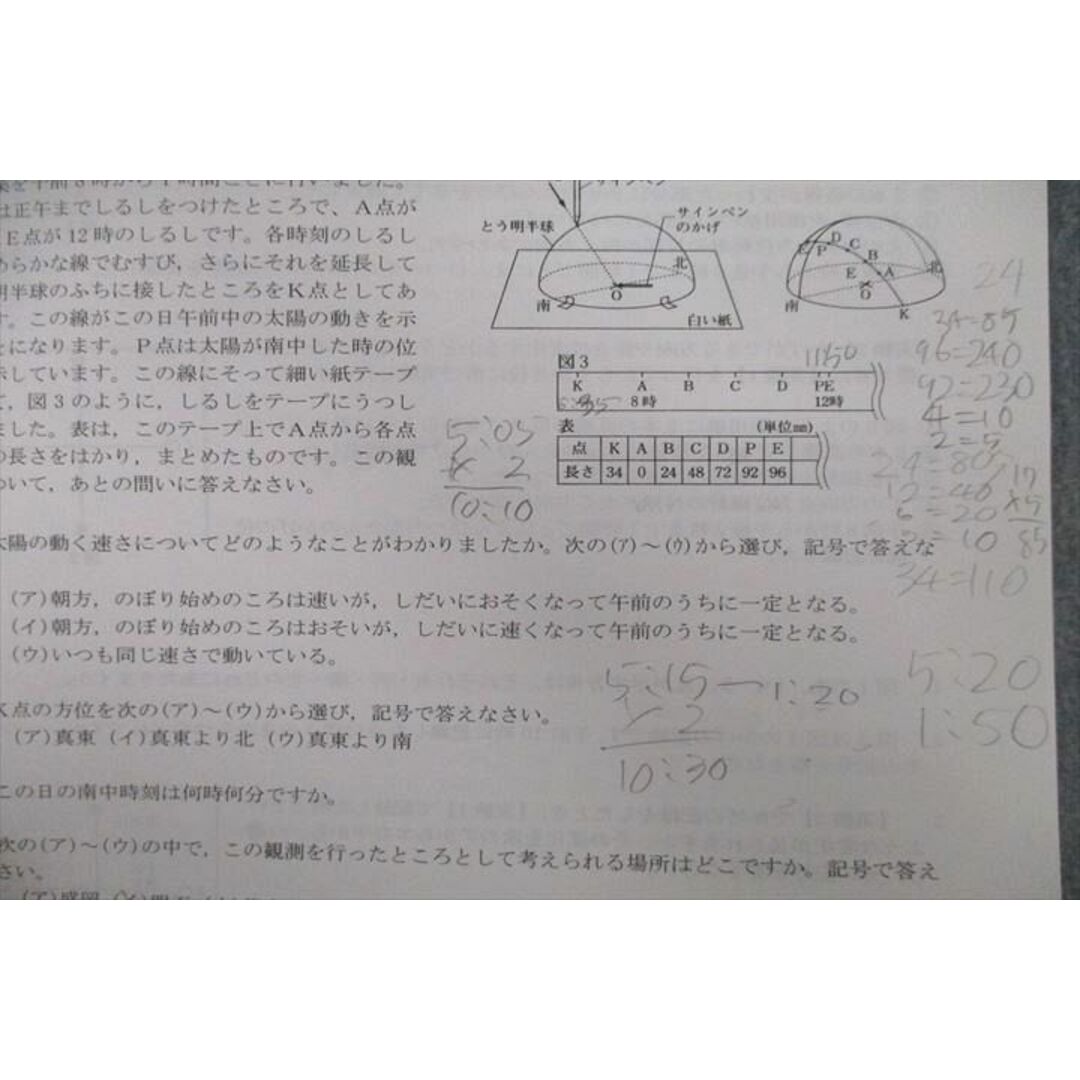 を午前8時から1時間ごとに行いました。
は正午までしるしをつけたところで、A点が
E点が12時のしるしです。各時刻のしるし
めらかな線でむすび,さらにそれを延長して
明半球のふちに接したところをK点としてあ
す。この線がこの日午前中の太陽の動きを示
とになります。P点は太陽が南中した時の位
示しています。この線にそって細い紙テープ
て,図3のように,しるしをテープにうつし
ました。表は,このテープ上でA点から各点
の長さをはかり,まとめたものです。この観
ついて,あとの問いに答えなさい。
サインペン
とう明半球
サインペン
のかげ
北
南
O
白い紙
E P D C B A
E
O
北
南
K
図3
11:50
K A B C D PE
5:35 8時 12時
表 (単位mm)
点 K A B C D P E
長さ 34 0 24 48 72 92 96
5:05
× 2
10:10
24
34=85
96=240
92=230
4=10
2=5
24=80
12=40
6=20
3=10
34=110
17
×5
85
太陽の動く速さについてどのようなことがわかりましたか。次の(ア)~(ウ)から選び,記号で答えな
(ア)朝方,のぼり始めのころは速いが,しだいにおそくなって午前のうちに一定となる。
(イ)朝方,のぼり始めのころはおそいが,しだいに速くなって午前のうちに一定となる。
(ウ)いつも同じ速さで動いている。
5:15 ー 1:20
× 2
10:30
5:20
1:50
K点の方位を次の(ア)~(ウ)から選び,記号で答えなさい。
(ア)真東 (イ)真東より北 (ウ)真東より南
この日の南中時刻は何時何分ですか。
次の(ア)~(ウ)の中で,この観測を行ったところとして考えられる場所はどこですか。記号で答え
さい。
(ア)盛岡 (イ)明石